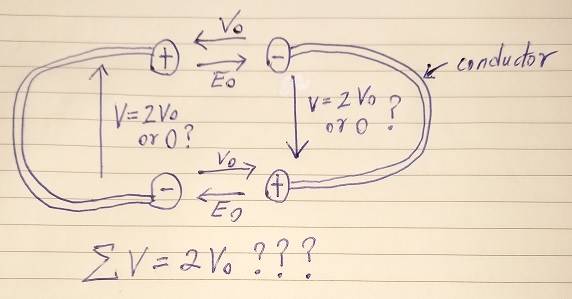 V₀
+ − conductor
E₀
V=2V₀ or 0?
V=2V₀ or 0?
V₀
− +
E₀
∑V=2V₀???